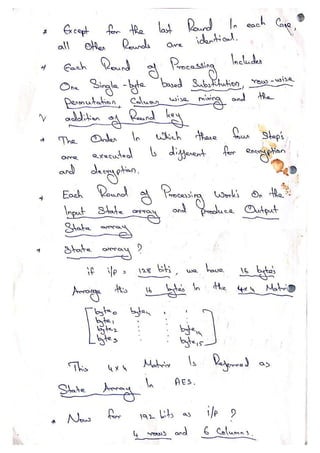 * Except for the last Round In each Case,
all other Rounds are identical.
* Each Round of Processing Includes
One Single-byte based Substitution, row-wise
Permutation, Column wise mixing and the
addition of Round key
* The Order In Which these four Steps
are executed Is different for encryption
and decryption.
* Each Round of Processing Works On the
Input State array and produce Output
State array
* State array ?
if i/p = 128 bits, we have 16 bytes
Arrange this 16 bytes In the 4x4 Matrix
byte0 byte4 . .
byte1 .
byte2 . byte14
byte3 byte15
This 4x4 Matrix Is Referred as
State Array In AES.
* Now for 192 bits as i/p ?
4 rows and 6 Columns.